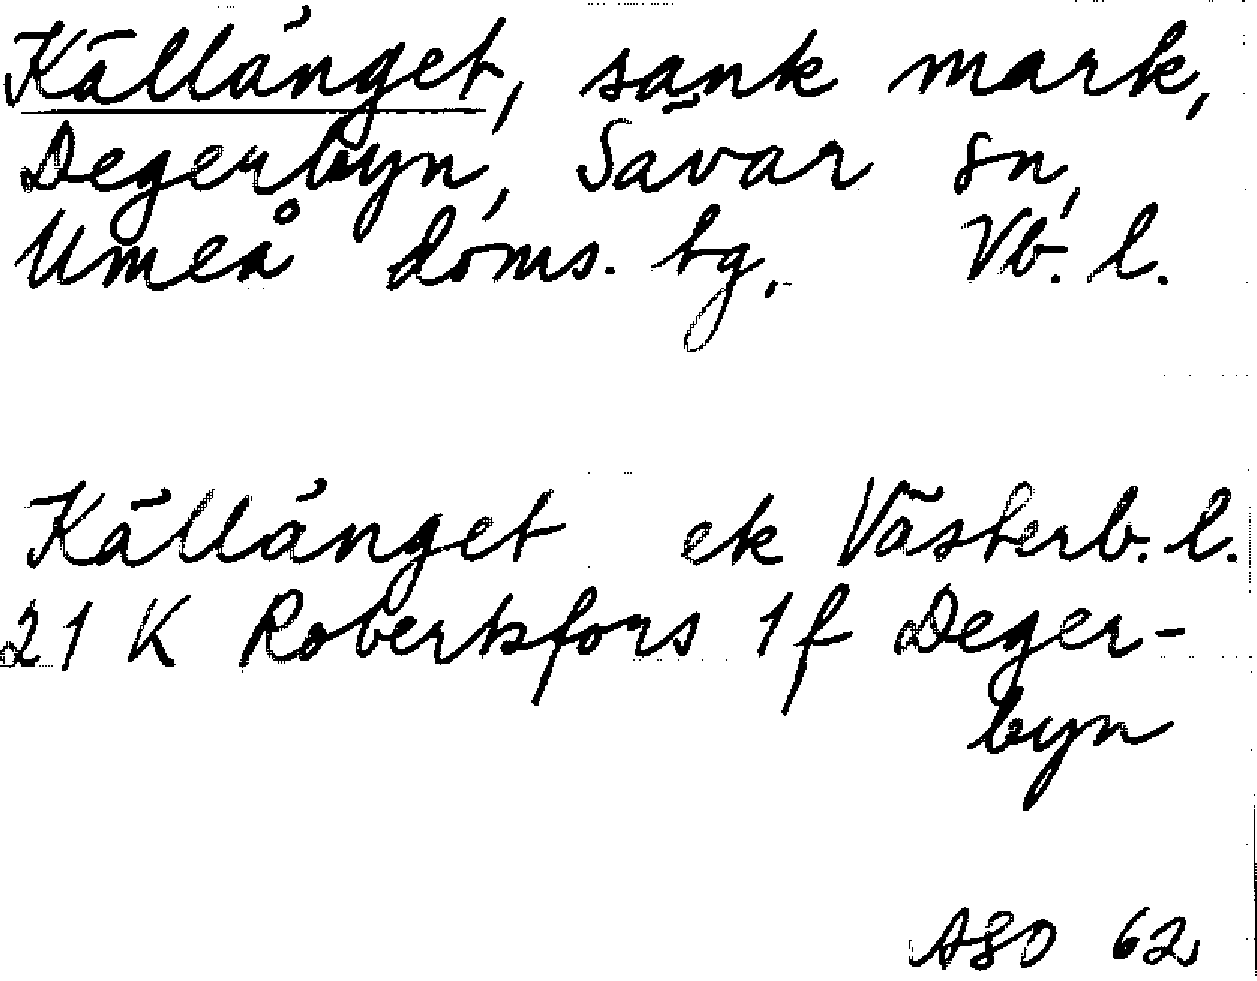 Källänget, sank mark,
Degerbyn, Sävar sn,
Umeå doms. tg. Vb. l.
Källänget ek Västerb. l.
21 K Robertsfors 1 f Deger-
byn
ASO 62